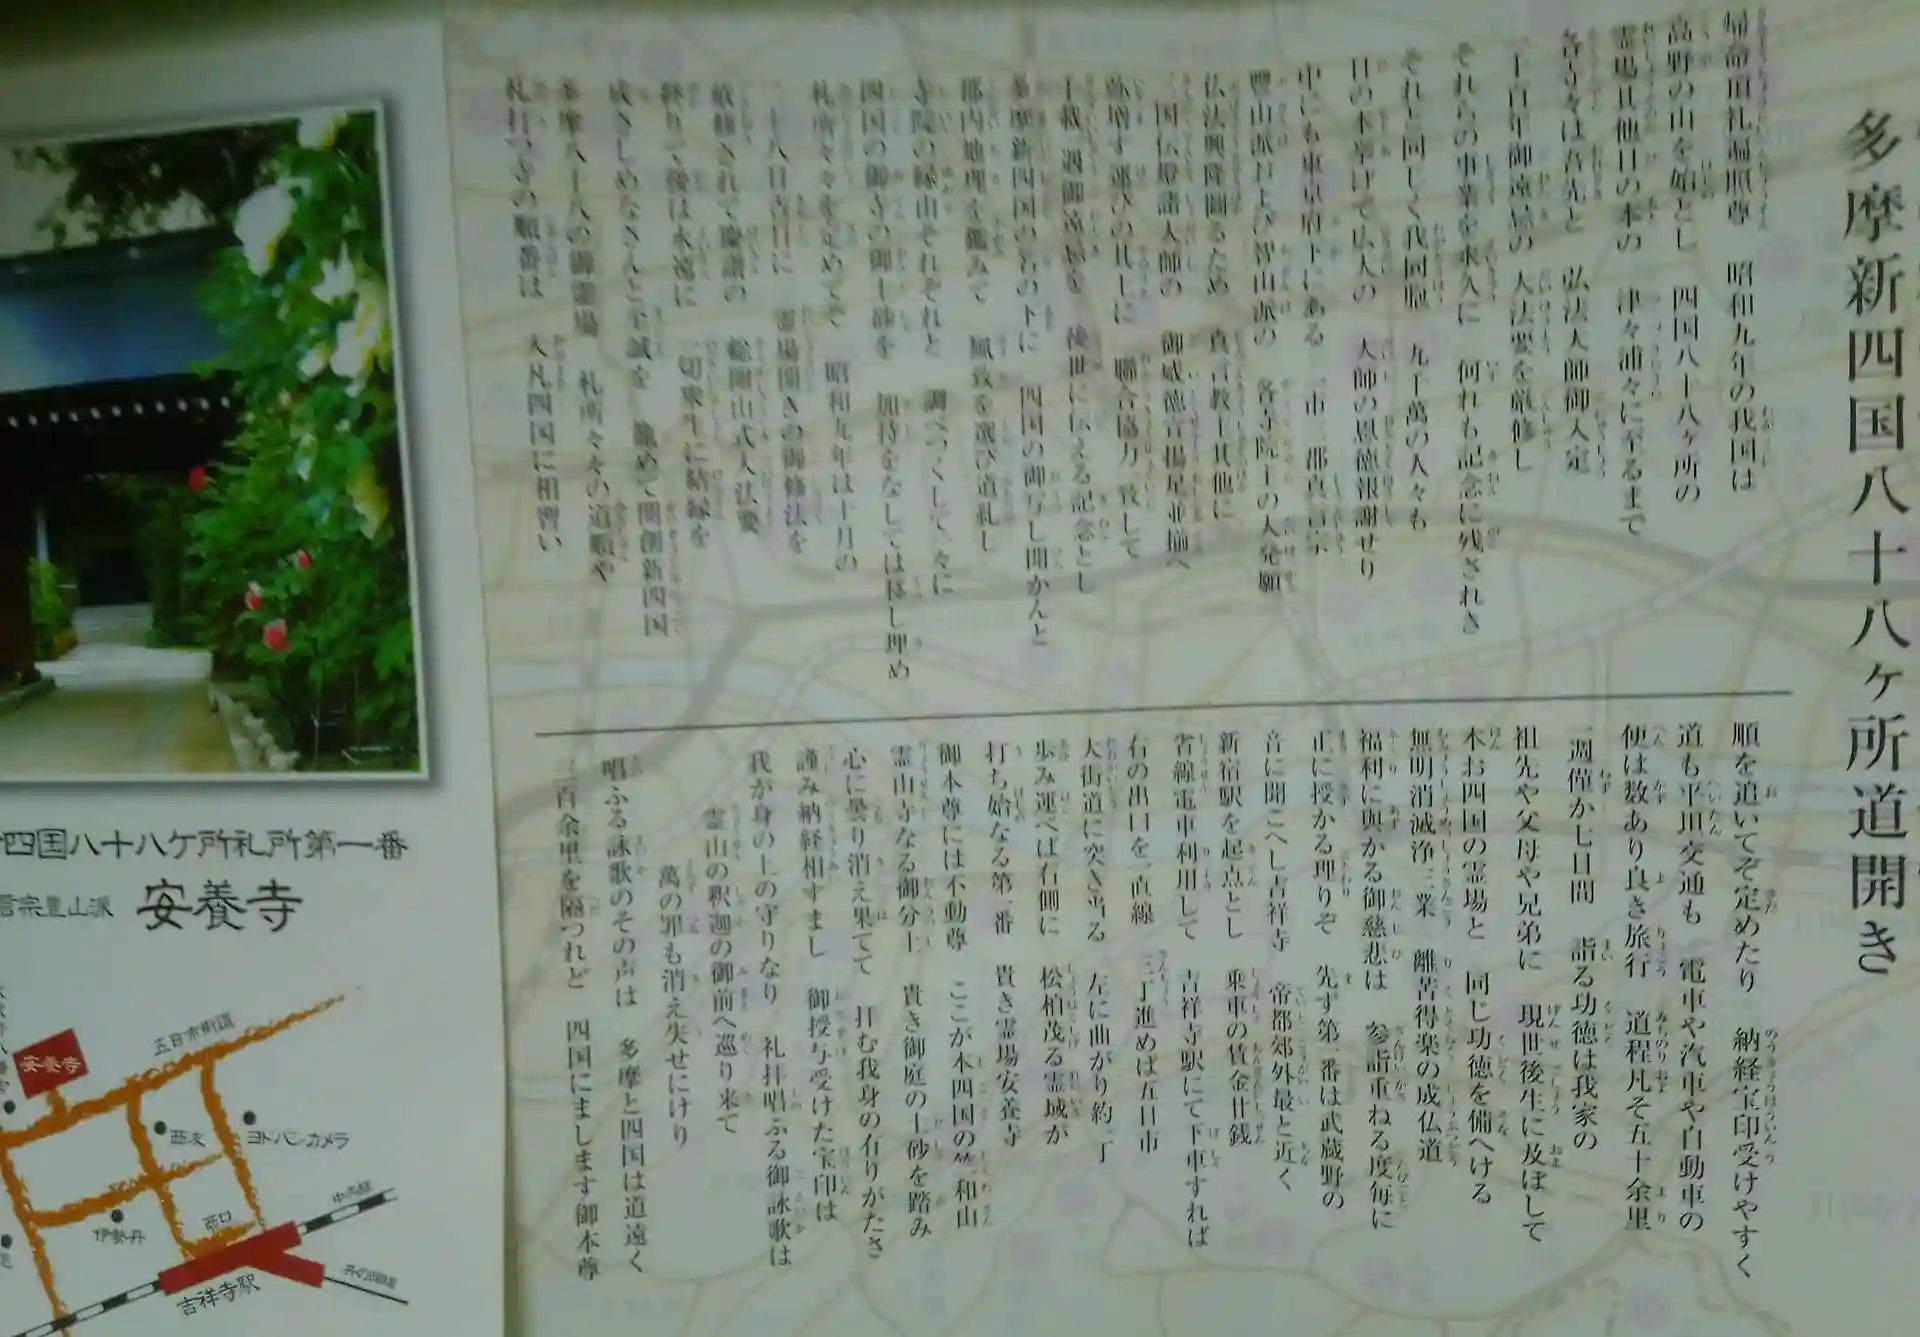 多摩新四国八十八ケ所道開き
帰命頂礼遍照尊 昭和九年の我国は
高野の山を始とし 四国八十八ヶ所の
霊場其他日の本の 津々浦々に至るまで
各寺々は吾先と 弘法大師御入定
一千百年御遠忌の 大法要を厳修し
それらの事業を永久に 何れも記念に残されき
それと同じく我同胞 九千萬の人々も
日の本挙げて広大の 大師の恩徳報謝せり
中にも東京府下にある 一市三郡真言宗
豊山派および智山派の 各寺院主の大発願
仏法興隆図るため 真言教主其他に
三国伝燈諸大師の 御威徳宣揚是並揃へ
弥増す運びの其上に 聯合協力一致して
千載一遇御遠忌を 後世に伝える記念とし
多摩新四国の名の下に 四国の御写し開かんと
郡内地理を鑑みて 風致を選び道礼し
寺院の縁由それぞれと 調べつくして
四国の御寺の御土砂を 加持をなしては移し埋め
札所々々を定めてぞ 昭和九年は十月の
二十八日吉日に 霊場開きの御修法を
厳修されて慶讃の 総剛山式大法要
終りて後は永遠に 一切衆生に結縁を
成さしめなさんと至誠を 籠めて開創新四国
多摩八十八の御霊場 札所々々の道順や
札打つ寺の順番は 大凡四国に相習い
順を追いてぞ定めたり 納経宝印受けやすく
道も平坦交通も 電車や汽車や自動車の
便は数あり良き旅行 道程凡そ五十余里
一週僅か七日間 詣る功徳は我家の
祖先や父母や兄弟に 現世後生に及ぼして
本お四国の霊場と 同じ功徳を備へける
無明消滅浄三業 離苦得楽の成仏道
福利に與かる御慈悲は 参詣重ねる度毎に
正に授かる理りぞ 先ず第一番は武蔵野の
音に聞こへし吉祥寺 帝都郊外最と近く
新宿駅を起点とし 乗車の賃金廿銭
省線電車利用して 吉祥寺駅にて下車すれば
右の出口を一直線 三丁進めば五日市
大街道に突き当る 左に曲がり約一丁
歩み運べば右側に 松柏茂る霊域が
打ち始なる第一番 貴き霊場安養寺
御本尊には不動尊 ここが本四国の竺和山
霊山寺なる御分土 貴き御庭の土砂を踏み
心に曇り消え果てて 拝む我身の有りがたさ
謹み納経相すまし 御授与受けた宝印は
我が身の上の守りなり 礼拝唱ふる御詠歌は
霊山の釈迦の御前へ巡り来て
萬の罪も消え失せにけり
唱ふる詠歌のその声は 多摩と四国は道遠く
三百余里を隔つれど 四国にまします御本尊
四国八十八ケ所札所第一番
言宗豊山派 安養寺
安養寺
五日市街道
西友
ヨドバシカメラ
伊勢丹
西口
中央線
吉祥寺駅
井の頭線